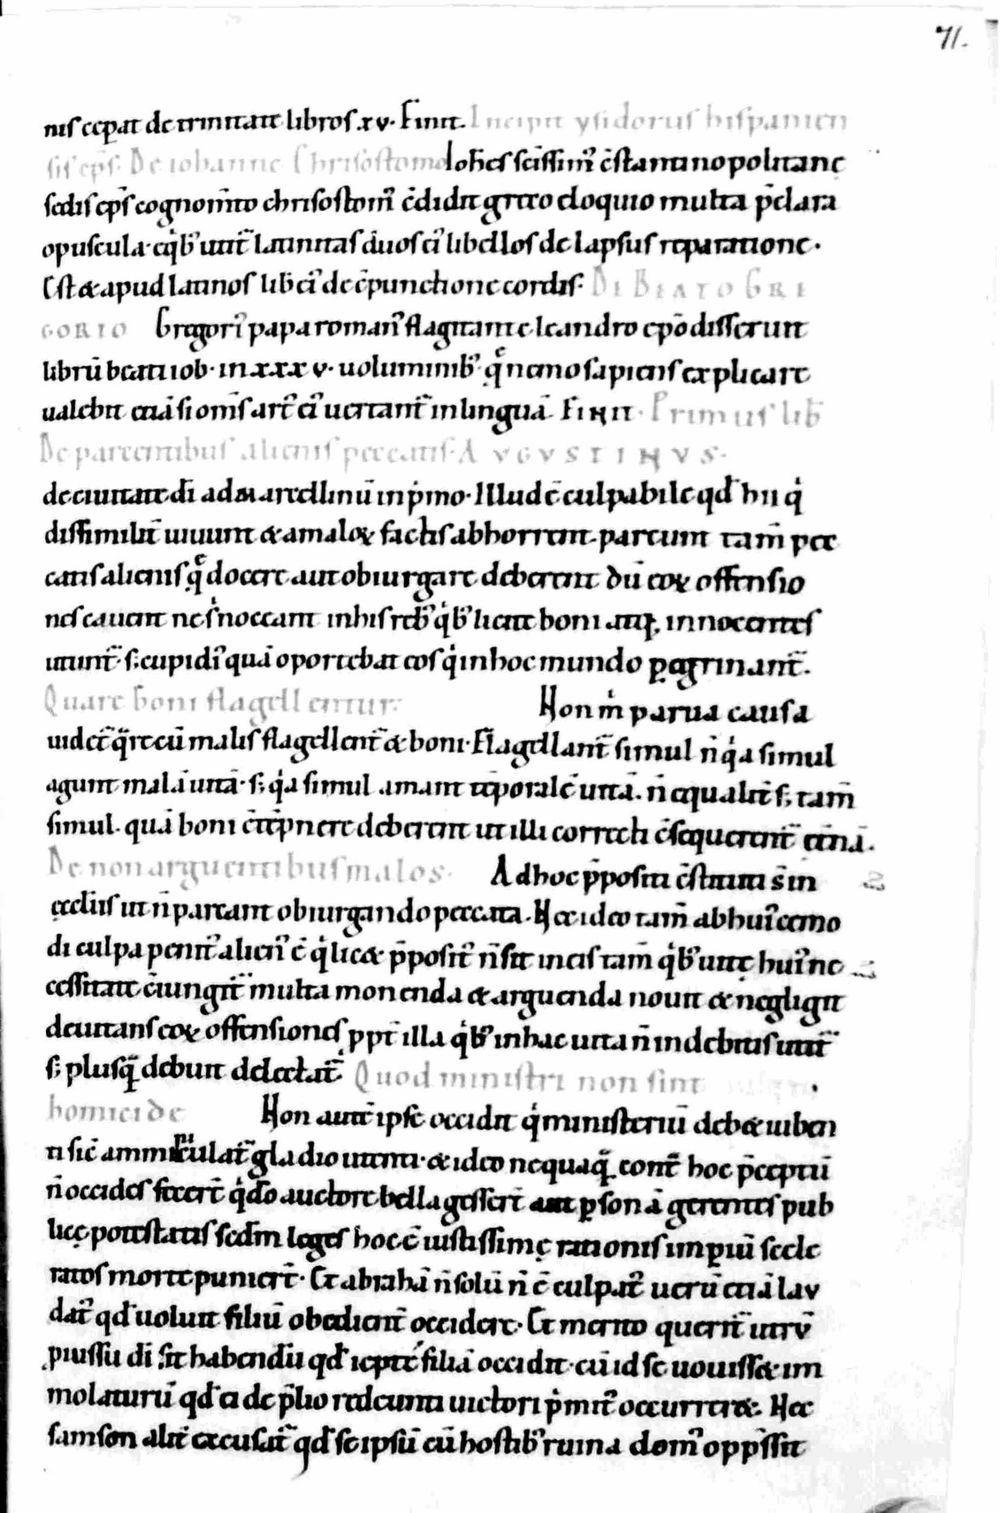 71.
nis cepat de trinitate libros .xv. Finit. Incipit ysidorus hispanien
sis ep̄s. De iohanne Chrisostomo Ioh̄es sc̄issim᷒ c̄stantinopolitanę
sedis ep̄s cognom̄to chrisostom᷒ c̄didit greco eloquio multa p̄clara
opuscula· eq̇b᷒ utit᷑ latinitas duos ei᷒ libellos de lapsus reparatione·
Est & apud latinos lib ei᷒ de c̄punctione cordis· DE BEATO GRE
GORIO Gregori᷒ papa roman᷒ flagitante leandro ep̄o disseruit
librū beati iob· in xxxv· voluminib᷒ qͤ nemo sapiens explicare
valebit etiā si om̄s art᷒ ei᷒ vertant᷑ in linguā· FINIT· Primus lib̄
De parcentibus alienis peccatis· AVGVSTINVS·
de civitate dī ad marcellinū in p̍mo· Illud ē culpabile qd̄ hii q̍
dissimilit᷑ vivunt & a maloꝝ factis abhorrent· parcunt tam̄ pec
catis alienis qͤ docere aut obiurgare deberent dū eoꝝ offensio
nes cavent ne s̍ noceant in his reb᷒ q̍b᷒ licite boni atq; innocentes
utunt᷑· s; cupidi᷒ quā oportebat eos q̍ in hoc mundo ꝑegrinant᷑·
Quare boni flagellentur· Non m̍ parva causa
videt᷑ q̄re cū malis flagellent᷑ & boni· Flagellant᷑ simul n̄ q̍a simul
agunt malā vitā· s; q̍a simul amant tēporalē vitā· n̄ equalit᷑ s; tam̄
simul· quā boni c̄tēpnere deberent ut illi correcti c̄sequerent᷑ et̄nā·
De non arguentibus malos· Ad hoc p̄positi c̄stituti s̄ in
ęcclīis ut n̄ parcant obiurgando peccata· Nec ideo tam̄ ab hui᷒cemo
di culpa penit᷒ alien᷒ ē q̍ lic& p̄posit᷒ n̄ sit in eis tam̄ q̍b᷒ vitę hui᷒ ne
cessitate c̄iungit᷑ multa monenda & arguenda novit & negligit
devitans eoꝝ offensiones ppt̄ illa q̍b᷒ in hac vita n̄ indebitis utit᷑
s; plusq̄ debuit delectat᷑· Quod ministri non sint
homicide Non aut̄ ipse occidit q̍ ministeriū deb& iuben
ti sic̄ amminicūlat᷑ gladio utenti· & ideo nequaq̄ cont̄ hoc p̄ceptū
n̄ occides fecer̄t q̍ dō auctore bella gesser̄t aut ꝑsonā gerentes pub
licę potestatis sedm̄ leges hoc ē iustissimę rationis imperiū scele
ratos morte punier̄t· Et abrahā n̄ solū n̄ ē culpat᷒ verū etiā lau
dat᷒ qd̄ voluit filiū obedient᷑ occidere· Et merito querit᷑ utrū
p iussu dī sit habendū qd̄ iepte filiā occidit· cū id se vovisse im
molaturū qd̄ ei de p̄lio redeunti victori p̍mit᷒ occurrer&· Nec
samson alit᷑ excusat᷑ qd̄ seipsū cū hostib᷒ ruina dom᷒ opp̄ssit